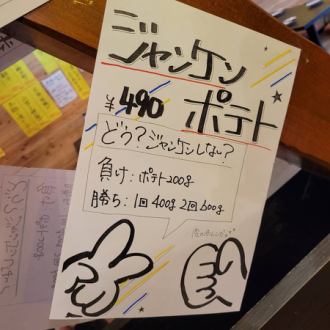 ジャンケン
ポテト
¥490
どう?ジャンケンしない?
負け:ポテト200g
勝ち:1回400g2回600g